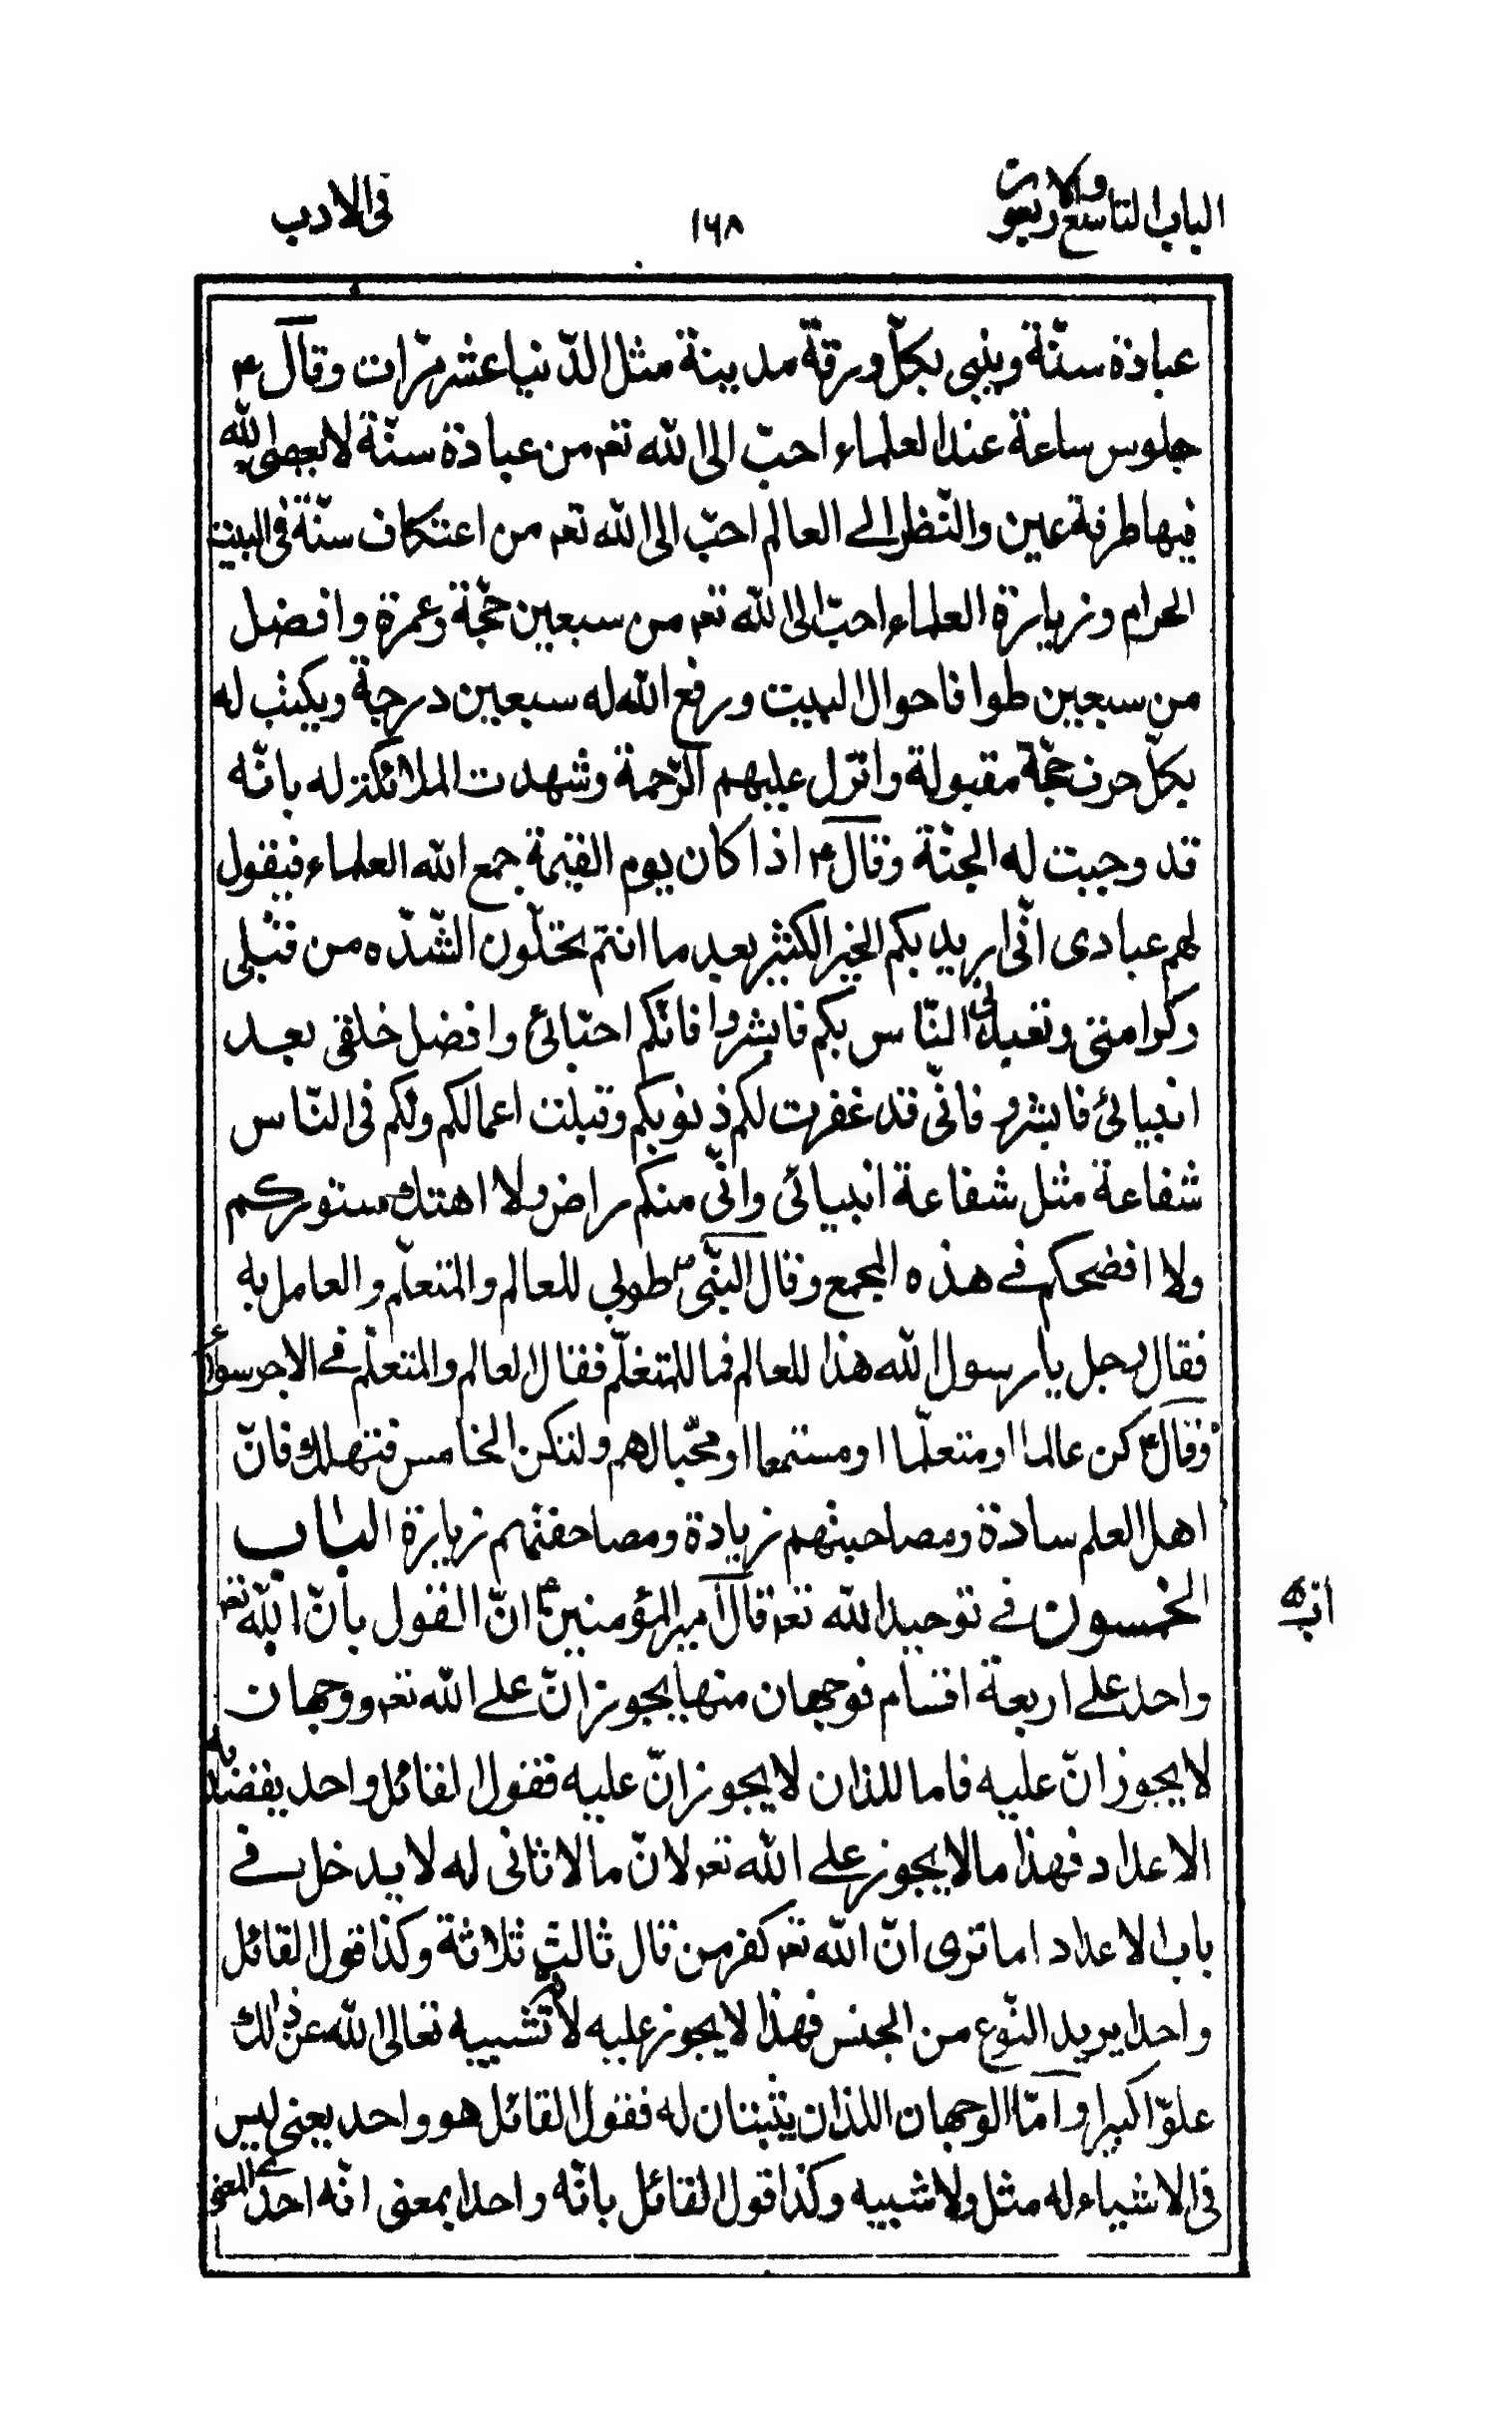 الباب التاسع والاربعون ١٦٨ فى الادب
عبادة سنّة ويبنى بكلّ ورقة مدينة مثل الدّنيا عشر مرّات وقال ؑ
جلوس ساعة عند العلماء احبّ الى الله تعہ من عبادة سنّة لا يعصى الله
فيها طرفة عين والنّظر الے العالم احبّ الى الله تعہ من اعتكاف سنّة فى البيت
الحرام وزيارة العلماء احبّ الى الله تعہ من سبعين حجّة وعمرة وافضل
من سبعين طوافا حوال البيت ورفع الله له سبعين درجة ويكتب له
بكلّ حرف حجّة مقبولة وانزل عليهم الرّحمة وشهدت الملائكة له بانّه
قد وجبت له الجنّة وقال ؑ اذا كان يوم القيمة جمع الله العلماء فيقول
لهم عبادى انّى اريد بكم الخير الكثير بعد ما انتم تحلّون الشّدّه من قبلى
وكرامتى وتعبدلى النّاس بكم فابشروا فانّكم احبّائى وافضل خلقى بعد
انبيائى فابشروا فانّى قد غفرت لكم ذنوبكم وقبلت اعمالكم ولكم فى النّاس
شفاعة مثل شفاعة انبيائى وانّى منكم راض ولا اهتك ستوركم
ولا افضحكم فے هذه المجمع وقال النّبى ؐ طوبى للعالم والمتعلّم والعامل به
فقال رجل يا رسول الله هذا للعالم فما للمتعلّم فقال العالم والمتعلّم فے الاجر سواء
وقال ؑ كن عالما او متعلّما او مستمعا او محبّا لهم ولتكن الخامس فتهلك فانّ
اهل العلم سادة ومصاحبتهم زيادة ومصاحفتهم زيارة الباب
الخمسون فے توحيد الله تعہ قال امير المؤمنين ؑ انّ القول بانّ الله تعہ
واحد علے اربعة اقسام فوجهان منها يجوز انّ علے الله تعہ ووجهان
لا يجوز انّ عليه فاما للذان لا يجوز انّ عليه فقول القائل واحد يقصد به
الاعداد فهذا ما لا يجوز علے الله تعہ لانّ ما لا ثانى له لا يدخل فے
باب الاعداد اما ترى انّ الله تعہ كفر من قال ثالث ثلاثة وكذا قول القائل
واحد يريد النّوع من الجنس فهذا لا يجوز عليه لانّه تشبيه تعالى الله عن ذلك
علوّا كبيرا وامّا الوجهان اللذان يثبتان له فقول القائل هو واحد يعنى ليس
فى الاشياء له مثل ولا شبيه وكذا قول القائل بانّه واحد بمعنى انّه احدے المعنى